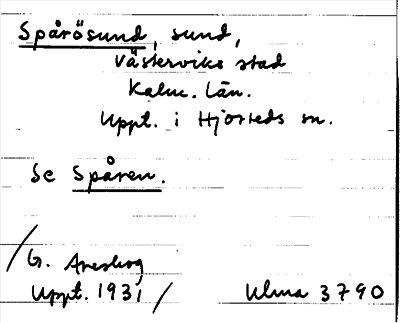 Spårösund, sund,
Västerviks stad
Kalm. län.
Uppt. i Hjorteds sn.
Se Spåren.
G.
Uppt. 1931
Ulma 3790